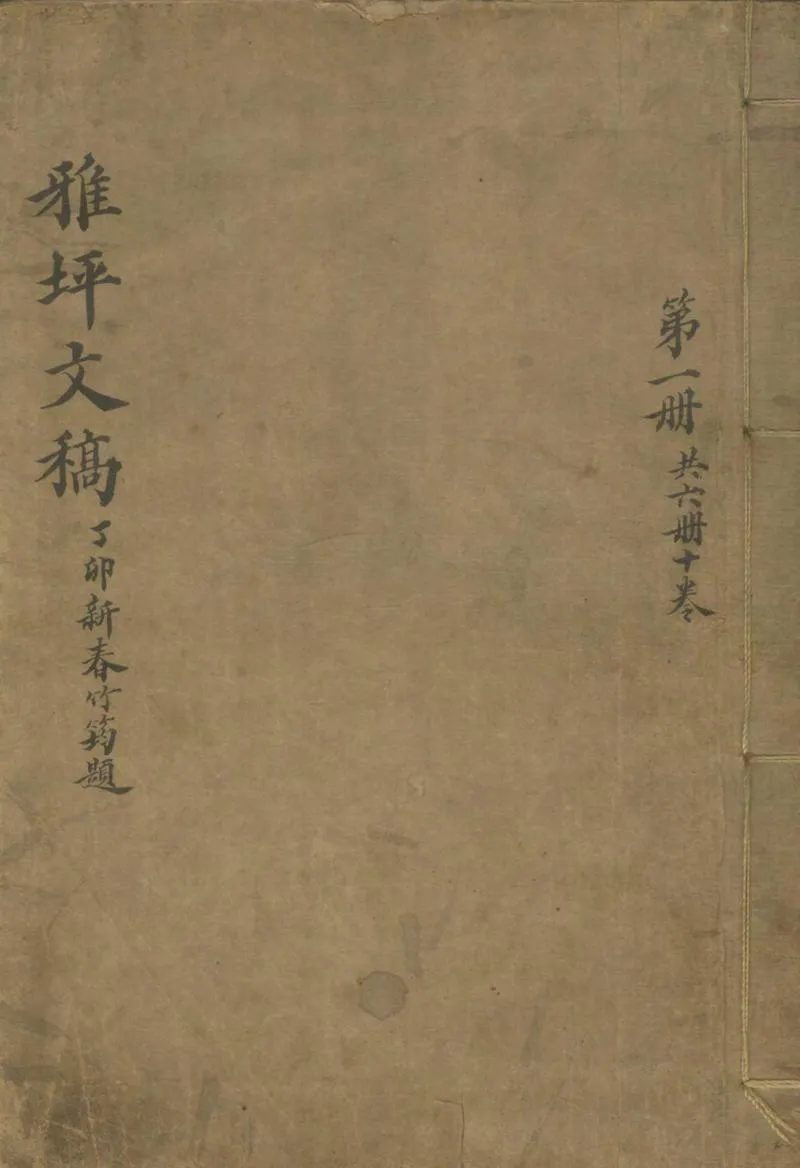 第一册
共六册十卷
雅坪文稿
丁卯新春竹筠題